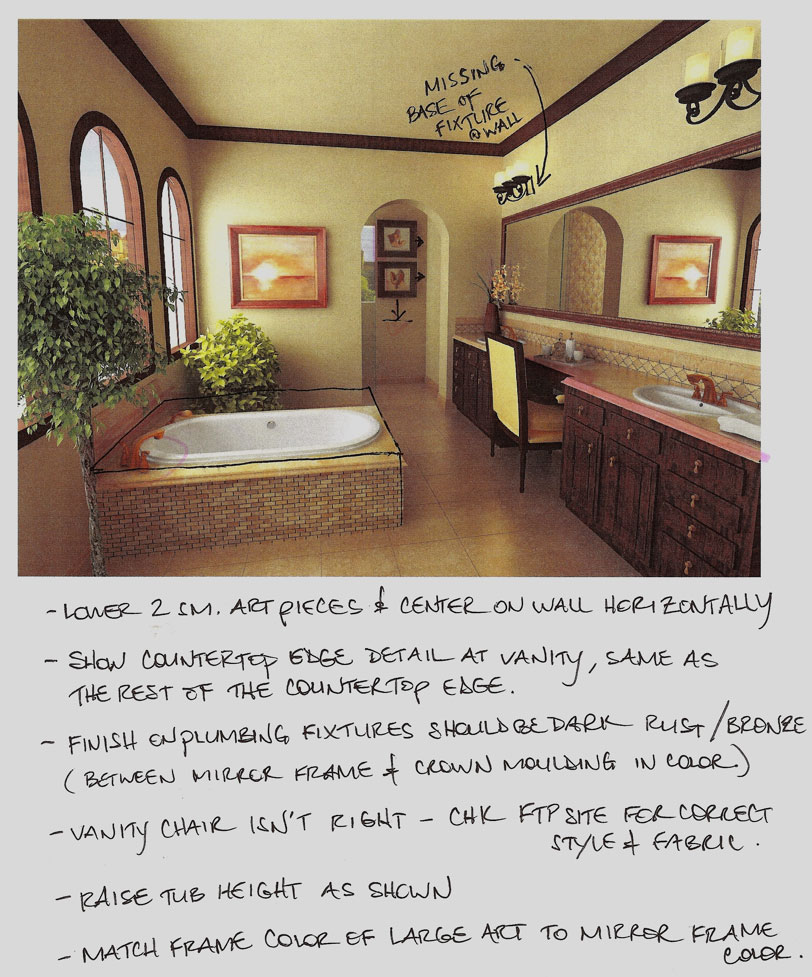 MISSING
BASE OF
FIXTURE
@ WALL
- LOWER 2 SM. ART PIECES & CENTER ON WALL HORIZONTALLY
- SHOW COUNTERTOP EDGE DETAIL AT VANITY, SAME AS
THE REST OF THE COUNTERTOP EDGE.
- FINISH ON PLUMBING FIXTURES SHOULD BE DARK RUST/BRONZE
(BETWEEN MIRROR FRAME & CROWN MOULDING IN COLOR.)
- VANITY CHAIR ISN'T RIGHT - CHK FTP SITE FOR CORRECT
STYLE & FABRIC.
- RAISE TUB HEIGHT AS SHOWN
- MATCH FRAME COLOR OF LARGE ART TO MIRROR FRAME
COLOR.